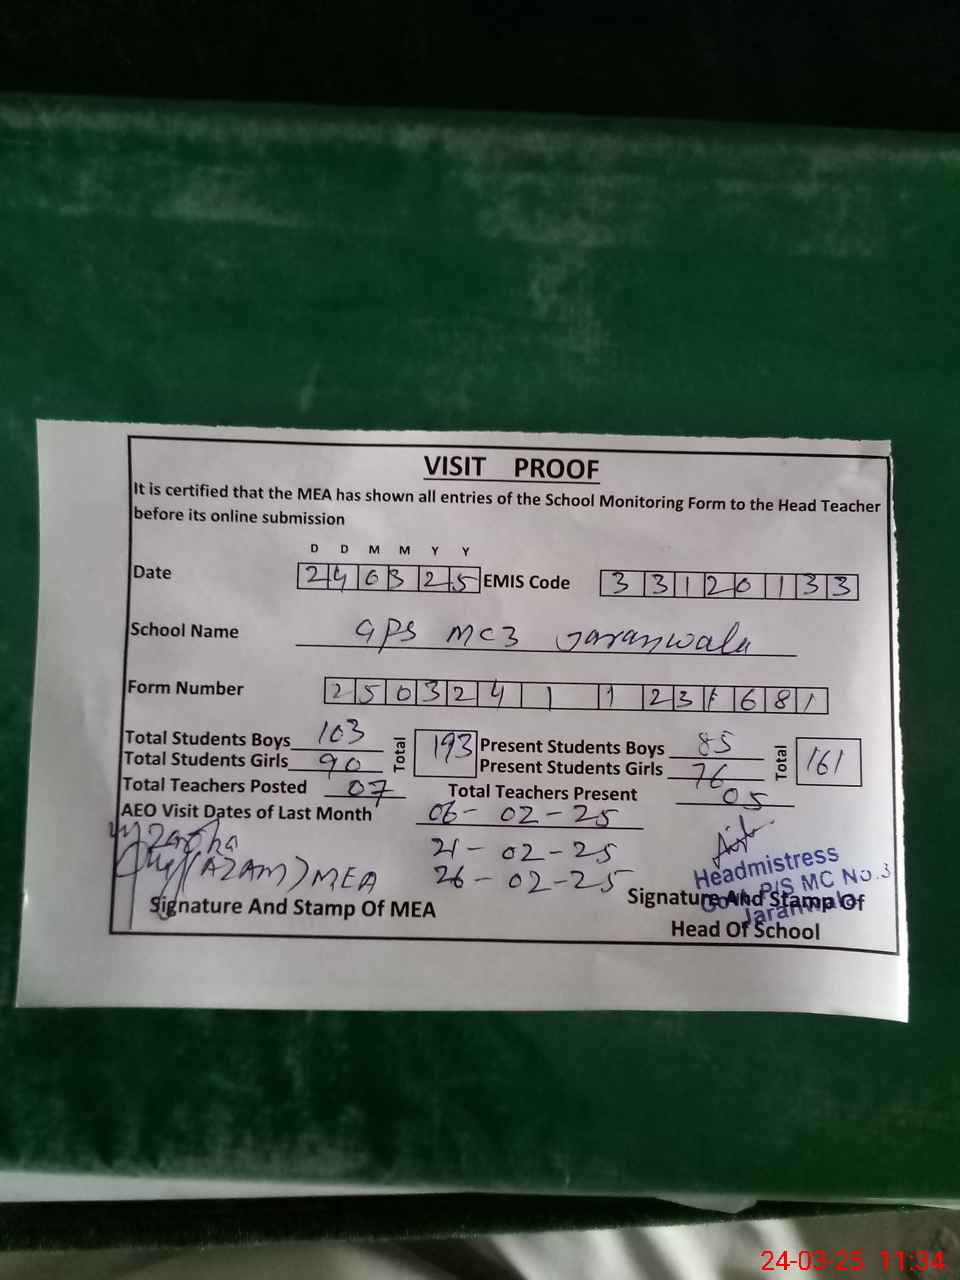 VISIT PROOF
It is certified that the MEA has shown all entries of the School Monitoring Form to the Head Teacher
before its online submission
D D M M Y Y
Date 240325 EMIS Code 33120133
School Name GPS MC3 Jaranwala
Form Number 2503241 1 231681
Total Students Boys 103 Total 193 Present Students Boys 85 Total 161
Total Students Girls 90 Present Students Girls 76
Total Teachers Posted 07 Total Teachers Present 05
AEO Visit Dates of Last Month 06-02-25
21-02-25
(AZAM) MEA 26-02-25
Headmistress
Govt. P/S MC No.3
Jaranwala
Signature And Stamp Of MEA
Signature And Stamp Of
Head Of School
24-03-25 11:34